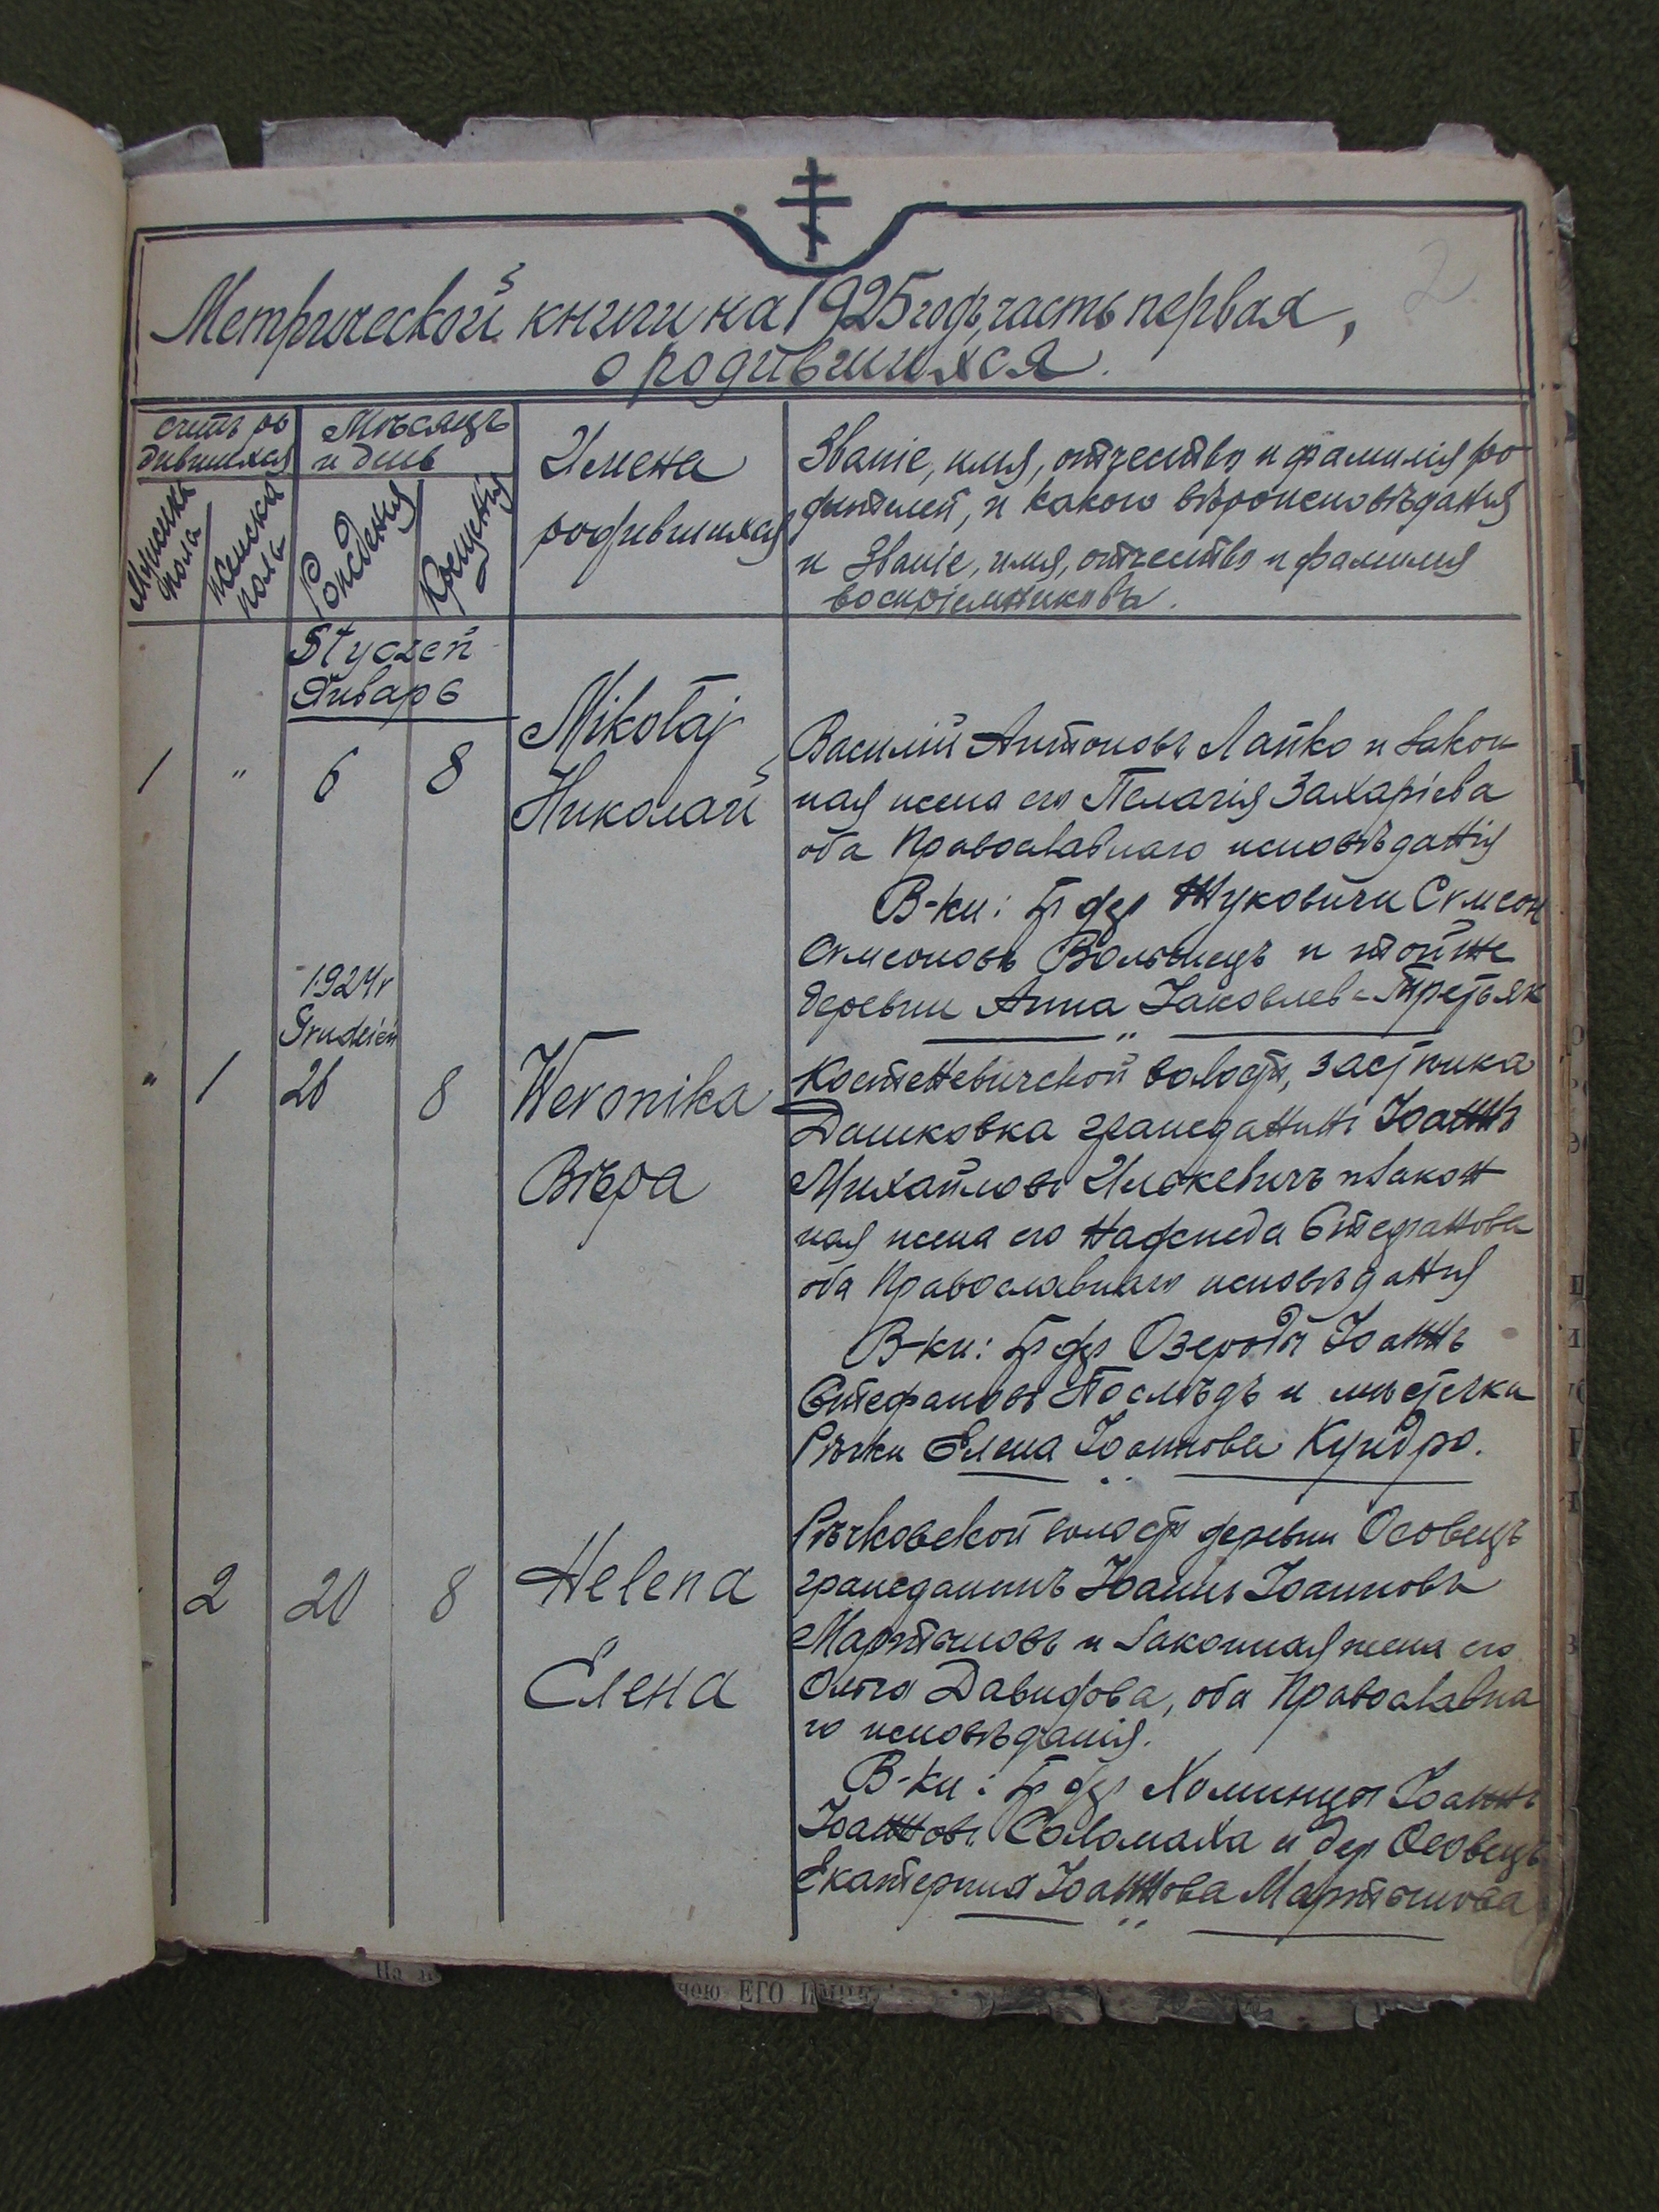 Метрической книги на 1925 годъ, часть первая,
о родившихся.
2
Счетъ ро
дившихся
Мѣсяцъ
и день
Мужска
пола
Женска
пола
Рожденія
Крещенія
Имена
родившихся
Званіе, имя, отчество и фамилія ро
дителей, и какого вѣроисповѣданія
и Званіе, имя, отчество и фамилия
воспріемниковъ.
Styczeń
Январь
1 " 6 8
Mikołaj
Николай
Василій Антоновъ Лапко и закон
ная жена его Пелагія Захаріева
оба Православнаго исповѣданія
В-ки: гр дер Жуковичи Симеон
Симеоновъ Волынецъ и той же
деревни Анна Іаковлев-Третьяк
1924 г
Grudzień
" 1 26 8
Weronika
Вѣра
Костеневичской волости, застѣнка
Дашковка гражданинъ Іоаннъ
Михайловъ Илькевичъ и закон
ная жена его Надежда Стефанова
оба Православнаго исповѣданія
В-ки: гр дер Озероды Іоаннъ
Стефановъ Послѣдъ и мѣстечка
Рѣчки Елена Іоаннова Кундро.
2 20 8
Helena
Елена
Рѣчковской волости деревни Осовецъ
гражданинъ Іоаннъ Іоанновъ
Мартыновъ и законная жена его
Ольга Давидова, оба Православна
го исповѣданія.
В-ки: гр дер Хоминцы Іоаннъ
Іоанновъ Саламаха и дер Осовецъ
Екатерина Іоаннова Мартынова
На
ною ЕГО ИМПЕ